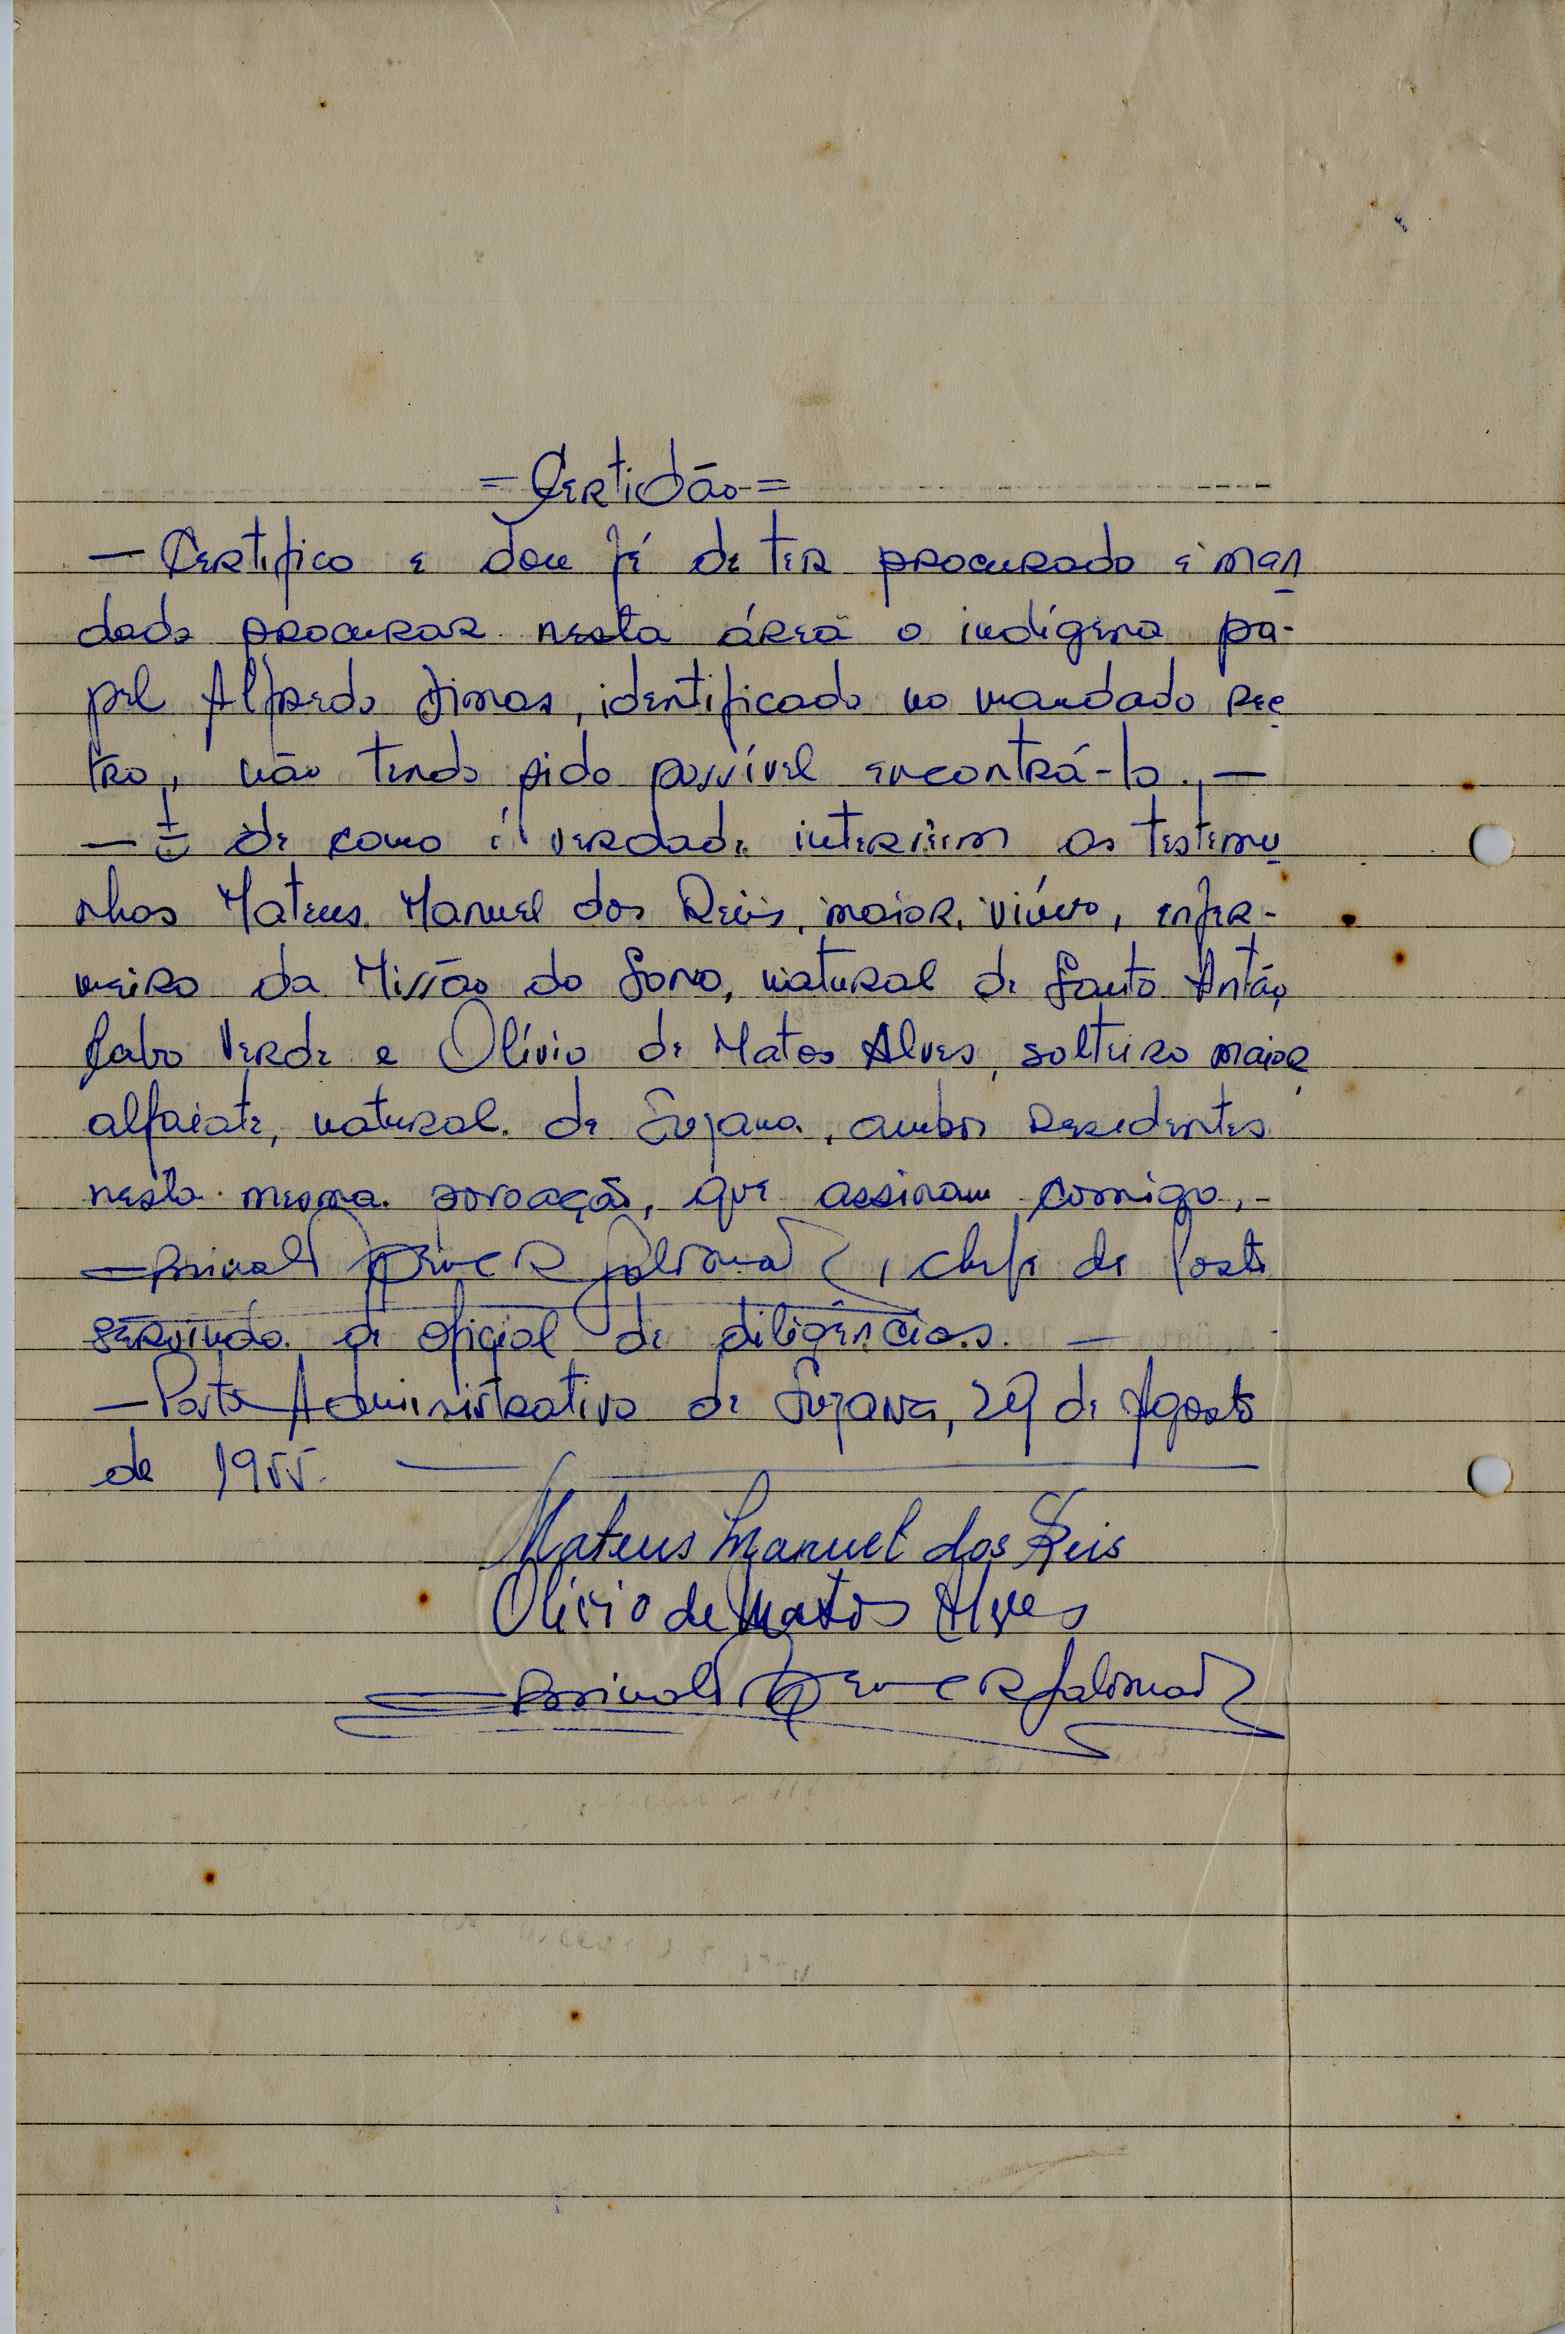 =Certidão=
— Certifico e dou fé de ter procurado e man
dado procurar nesta área o indígena pa-
pel Alfredo Dimas, identificado no mandado rec
tro, não tendo sido possível encontrá-lo. —
— E de como é verdade interviem as testemu
nhas Mateus Manuel dos Reis, maior, viúvo, enfer-
meiro da Missão do Sono, natural de Santo Antão,
Cabo Verde e Olívio de Matos Alves, solteiro maior,
alfaiate, natural de Suzana, ambos residentes
nesta mesma povoação, que assinam comigo, -
, chefe de Posto
servindo de oficial de diligências. —
— Posto Administrativo de Suzana, 29 de Agosto
de 1955. —
Mateus Manuel dos Reis
Olívio de Matos Alves